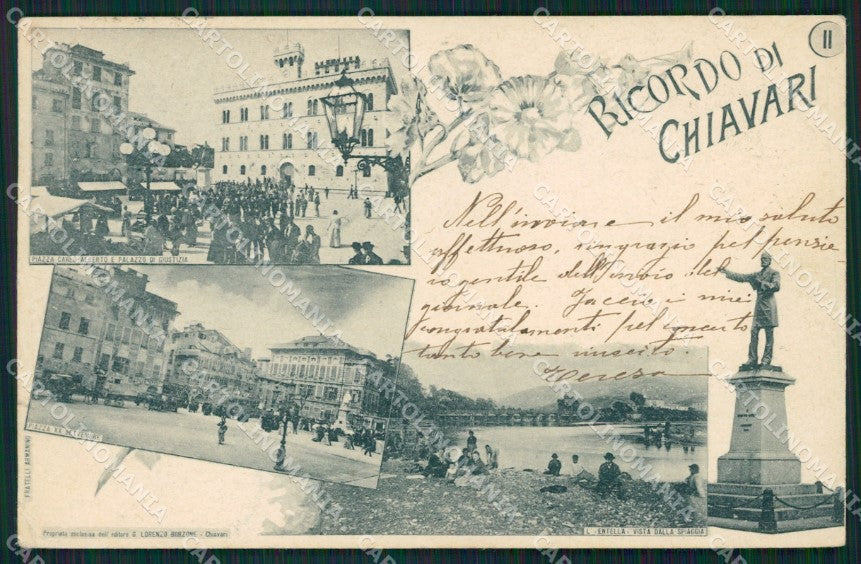 11
RICORDO DI
CHIAVARI
PIAZZA CARLO ALBERTO E PALAZZO DI GIUSTIZIA
Nell'inviare il mio saluto
affettuoso, ringrazio pel pensie
ro gentile dell'invio del
giornale. Faccio i miei
congratulamenti pel concerto
tanto bene riuscito.
Teresa
PIAZZA XX SETTEMBRE
FRATELLI ARMANINO
L'ENTELLA - VISTA DALLA SPIAGGIA
Proprietà esclusiva dell'editore G. LORENZO BORZONE - Chiavari
CARTOLINOMANIA